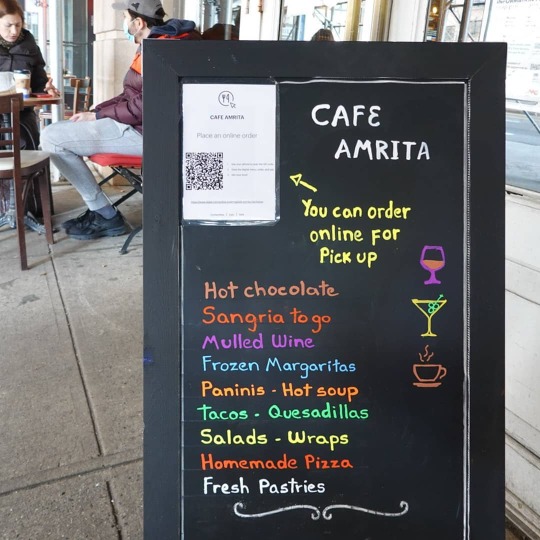 CAFE AMRITA
Place an online order
CAFE
AMRITA
You can order
online for
Pick up
Hot chocolate
Sangria to go
Mulled Wine
Frozen Margaritas
Paninis - Hot soup
Tacos - Quesadillas
Salads - Wraps
Homemade Pizza
Fresh Pastries